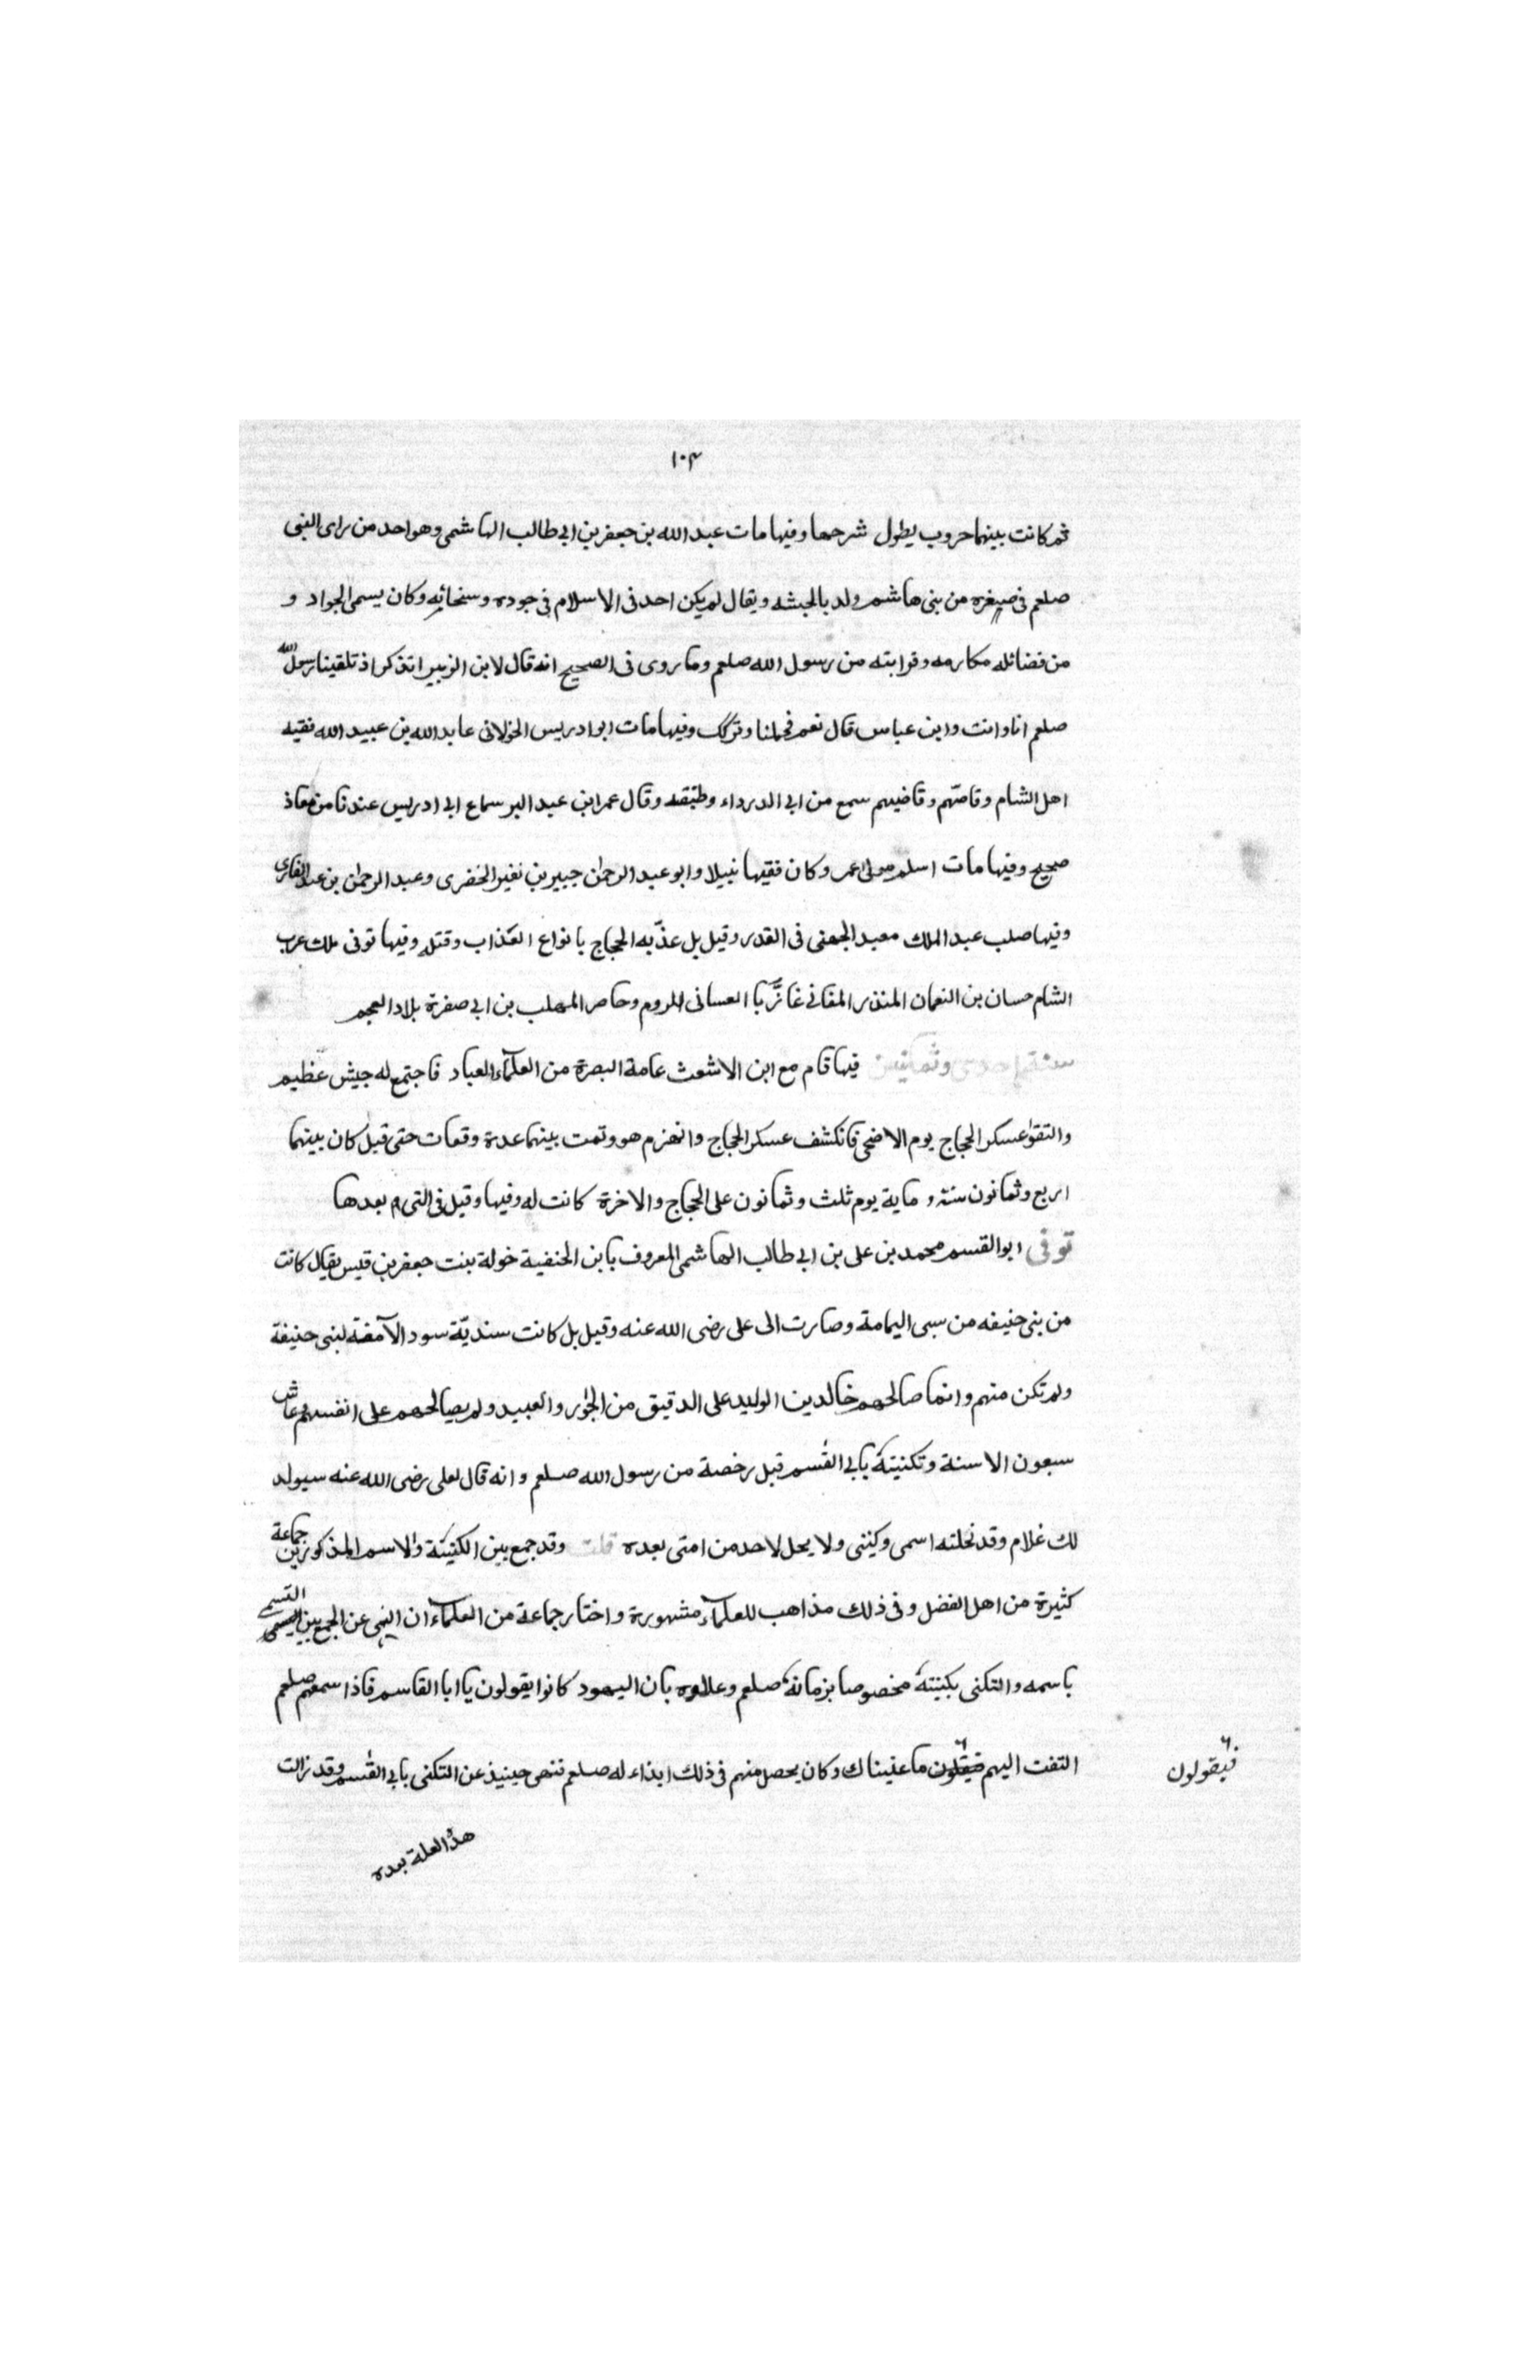 ١٠٣
ثم كانت بينهما حروب يطول شرحها وفيها مات عبد الله بن جعفر بن ابي طالب الهاشمي وهو احد من راى النبي
صلعم في صغره من بني هاشم ولد بالحبشه ويقال لم يكن احد في الاسلام في جوده وسخائه وكان يسمى الجواد و
من فضائله مكارمه وقرابته من رسول الله صلعم وما روى في الصحيح انه قال لابن الزبير اتذكر اذ تلقينا رسول الله
صلعم انا وانت وابن عباس قال نعم فحملنا وتركك وفيها مات ابو ادريس الخولاني عابد الله بن عبيد الله فقيه
اهل الشام وقاصّهم وقاضيهم سمع من ابي الدرداء وطبقته وقال عمر ابن عبد البر سماع ابي ادريس عندنا من معاذ
صحيح وفيها مات اسلم مولى عمر وكان فقيها نبيلا وابو عبد الرحمن جبير بن نفير الحضرى وعبد الرحمن بن عبد القارى
وفيها صلب عبد الملك معبد الجهني في القدر وقيل بل عذّبه الحجاج بانواع العذاب وقتله وفيها توفى ملك عرب
الشام حسان بن النعمان المنذر الغساني غازيا للروم وحاصر المهلب بن ابي صفرة بلاد العجم
سنة احدى وثمانين فيها قام مع ابن الاشعث عامة البصرة من العلماء العباد فاجتمع له جيش عظيم
والتقوا عسكر الحجاج يوم الاضحى فانكشف عسكر الحجاج وانهزم هو وتمت بينهما عدة وقعات حتى قيل كان بينهما
اربع وثمانون سنة و ماية يوم ثلث وثمانون على الحجاج والاخرة كانت له وفيها وقيل في التي بعدها
توفى ابو القسم محمد بن على بن ابي طالب الهاشمي المعروف بابن الحنفية خولة بنت جعفر بن قيس يقال كانت
من بني حنيفه من سبى اليمامة وصارت الى على رضى الله عنه وقيل بل كانت سنديّة سودا لامة لبنى حنيفة
ولم تكن منهم وانما صالحهم خالد بن الوليد على الدقيق من الجوار والعبيد ولم يصالحهم على انفسهم وعاش
سبعون الا سنة وتكنيته بابي القسم قيل رخصة من رسول الله صلعم وانه قال لعلى رضى الله عنه سيولد
لك غلام وقد نحلته اسمى وكنيتى ولا يحل لاحد من امتى بعده قلت وقد جمع بين الكنيتة والاسم المذكورين جماعة
كثيرة من اهل الفضل وفي ذلك مذاهب للعلماء مشهورة واختار جماعة من العلماء ان النهى عن الجمع بين التسمى
باسمه والتكنى بكنيته مخصوصا بزمانه صلعم وعللوه بان اليهود كانوا يقولون يا ابا القاسم فاذا سمعهم صلعم
التفت اليهم فيقولون ما عنيناك وكان يحصل منهم في ذلك ايذاء له صلعم فنهى حينيذ عن التكنى بابي القسم وقد زالت
فيقولون
هذ العلة بعده